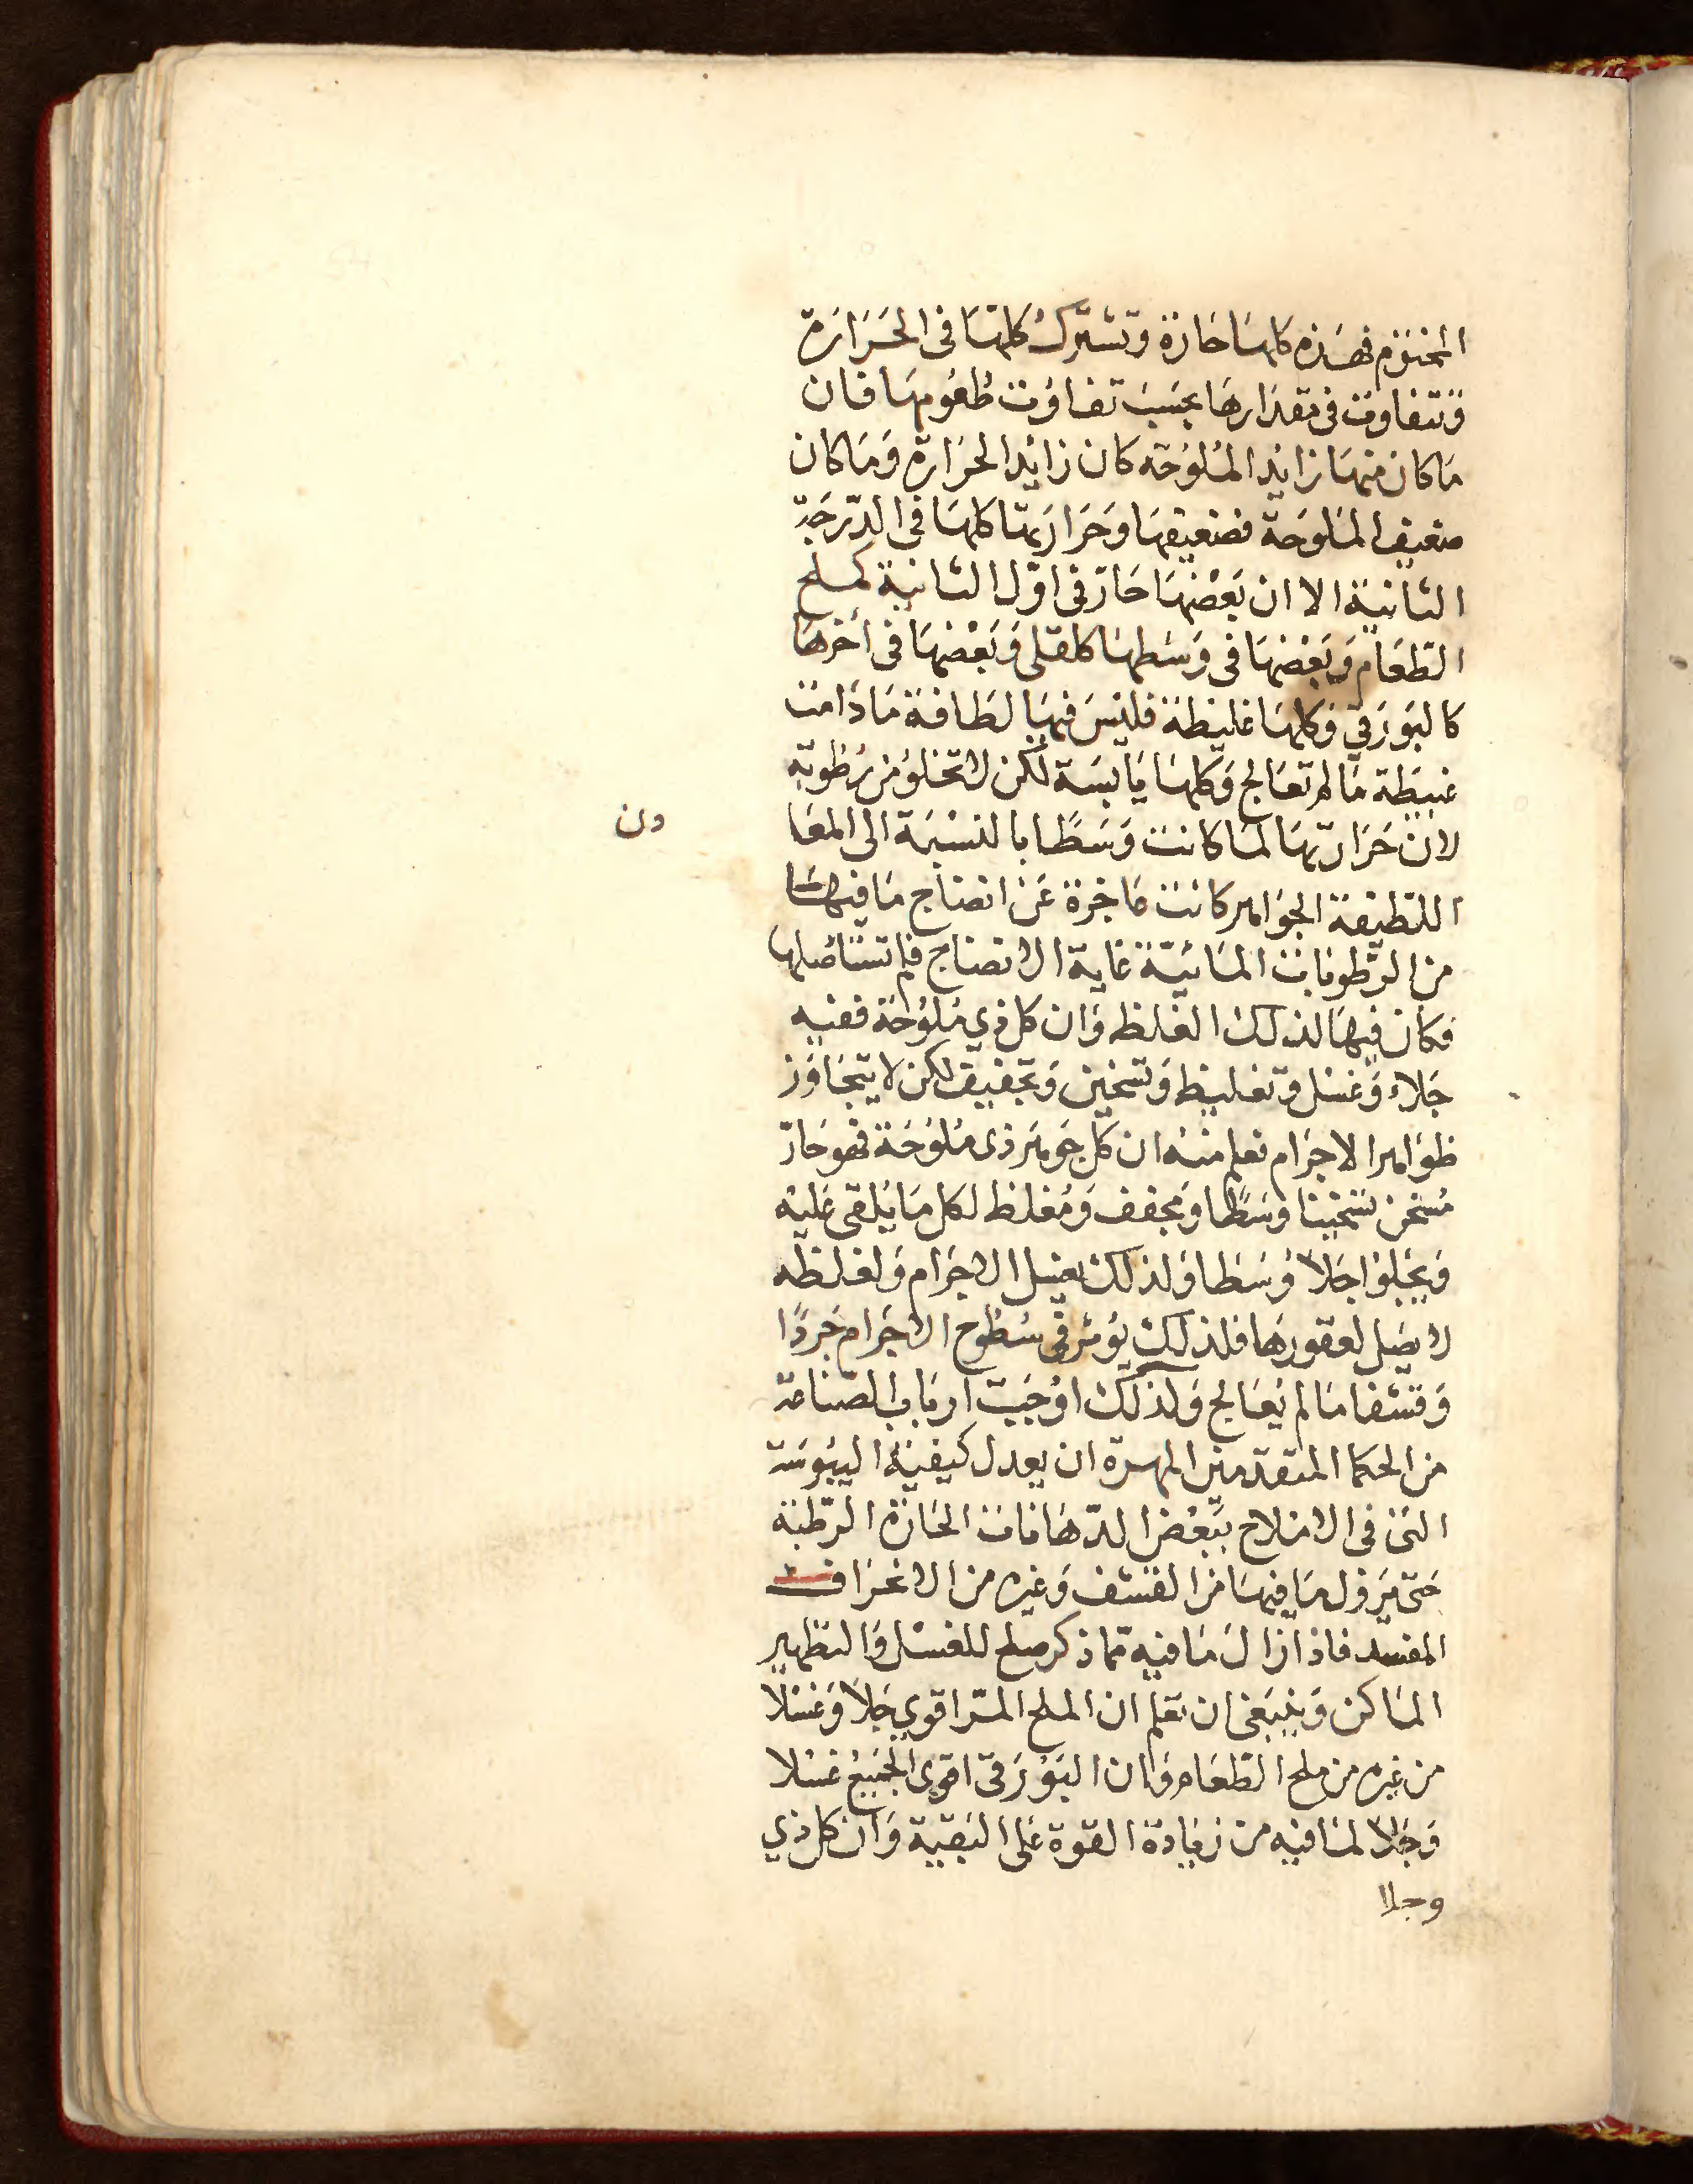 المختوم فهذه كلها حارة وتشترك كلها فى الحرارة
وتتفاوت فى مقدارها بحسب تفاوت طعومها فان
ما كان منها زايد الملوحة كان زايد الحرارة وما كان
ضعيف الملوحة فضعيفها وحرارتها كلها فى الدرجة
الثانية الا ان بعضها حار فى اول الثانية كملح
الطعام وبعضها فى وسطها كالقلى وبعضها فى اخرها
كالبورق وكلها غليظة فليس فيها لطافة ما دامت
غبيطة ما لم تعالج وكلها يابسة لكن لا تخلو من رطوبة
لان حرارتها لما كانت وسطا بالنسبة الى المعا
دن
اللطيفة الجواهر كانت عاجزة عن انضاج ما فيها
من الرطوبات المائية غاية الانضاج فلم تستاصلها
فكان فيها لذلك الغلظ وان كل ذي ملوحة ففيه
جلاء وغسل وتغليظ وتسخين وتجفيف لكن لا يتجاوز
ظواهر الاجرام نعلم منه ان كل جوهر ذى ملوحة فهو حار
مسخن تسخينا وسطا ومجفف ومغلظ لكل ما يلقى عليه
ويجلوا جلاً وسطا ولذلك يغسل الاجرام ولغلظه
لا يصل لعقورها فلذلك يؤثر فى سطوح الاجرام جردًا
وقشفا ما لم يعالج ولذلك اوجبت ارباب الصناعة
من الحكما المتقدمين المهرة ان يعدل كيفية اليبوسة
التى فى الاملاح ببعض الدهانات الحارة الرطبة
حتى يزول ما فيها من القشف وغيره من الاغراف
المفسد فاذا زال ما فيه مما ذكر صلح للغسل والتطهير
الماكن وينبغى ان تعلم ان الملح المر اقوي جلاً وغسلا
من غيره من ملح الطعام وان البورق اقوى الجميع غسلا
وجلاً لما فيه من زيادة القوة على البقية وان كل ذي
وجلا